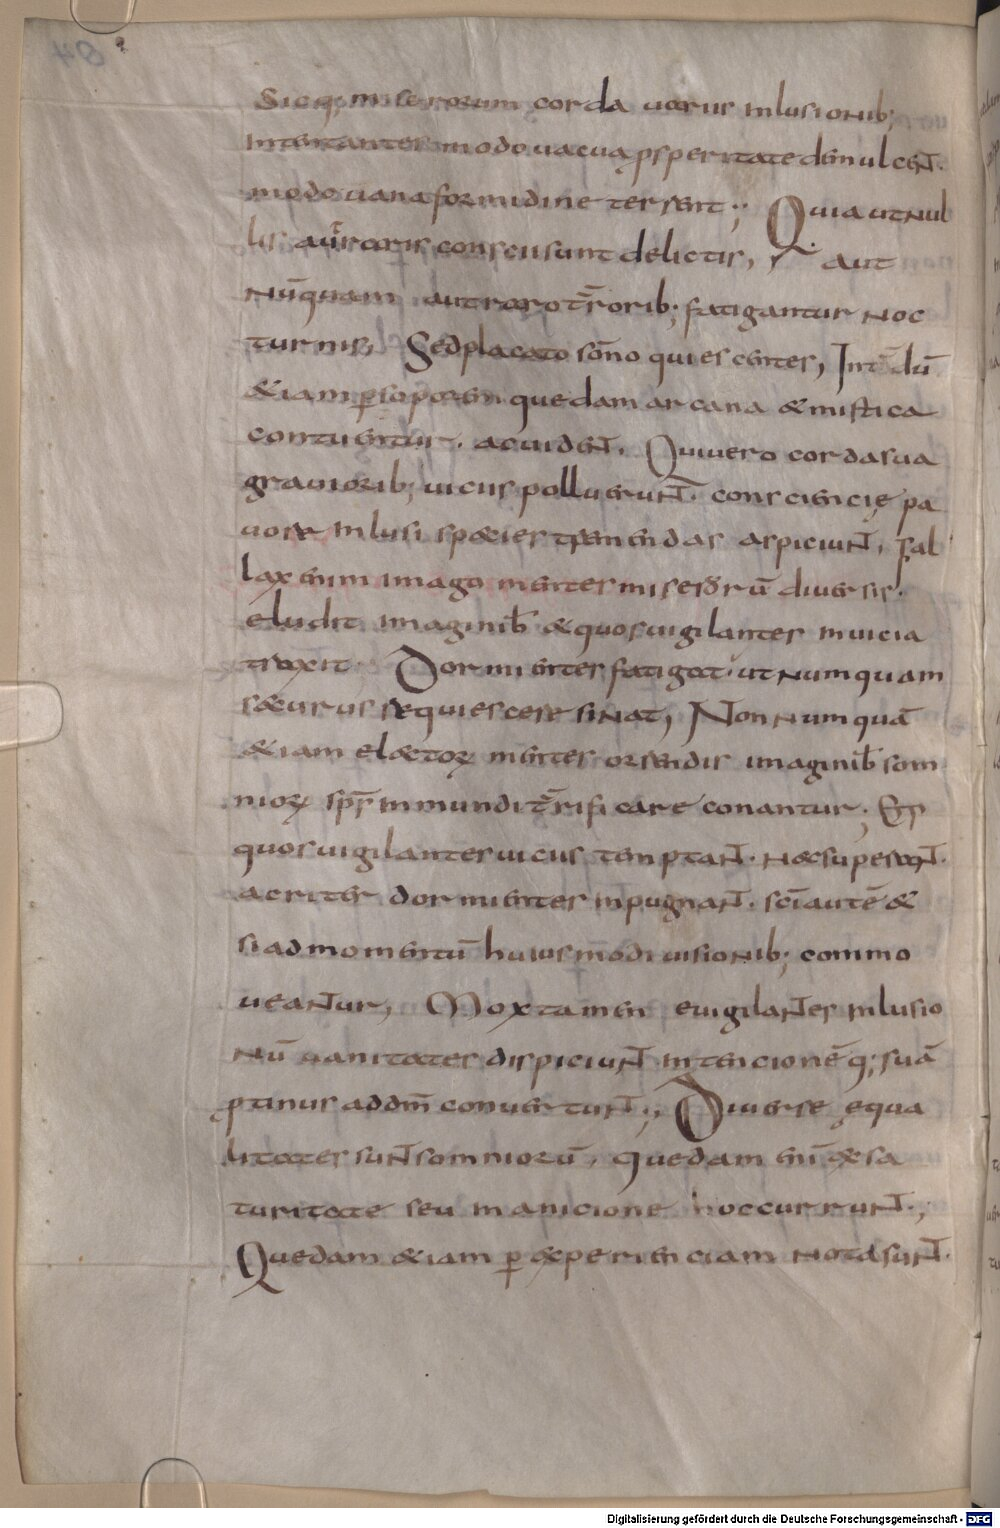 Sicq; miserorum corda uariis inlusionib;
Intentantes modo uacua ꝓsperitate demulcent.
modo uana formidine terrent;, Quia ut nul
lis aut raris conscii sunt delictis, aut
nūquam aut raro t̄roribꝫ fatigantur noc
turnis, Sed placato sōno quiescentes, Int̄dū
&iam ꝑ soporem quedam arcana & mistica
contuentur. ac uident. Qui uero corda sua
grauiorib; uicus polluerunt. consciencię pa
uore inlusi species tremendas aspiciunt, fal
lax enim imago mentes miserorū diuersis.
eludit imaginib̄ & quos uigilantes in uicia
traxit. Dormientes fatigat. ut numquam
securus requiescere sinat, Non numquā
&iam electoꝝ mentes orrendis imaginib̄ som
nioꝝ sps̄ inmundi t̄rrificare conantur; Et
quos uigilantes uicus temptant. nec superant.
acriter dormientes inpugnant. sc̄i autē &
si ad momentū huiusmodi uisionib; commo
ueantur, Mox tamen euigilantes inlusio
nū uanitates dispiciunt intencionēq; suā
ꝓtinus ad dm̄ conuertunt;, Diuerse ęqua
litates sunt somniorū, quedam eni̅ ex sa
turitate seu inanicione hoccurrunt;
Quedam &iam ꝑ experienciam nota sunt.
84
Digitalisierung gefördert durch die Deutsche Forschungsgemeinschaft - DFG